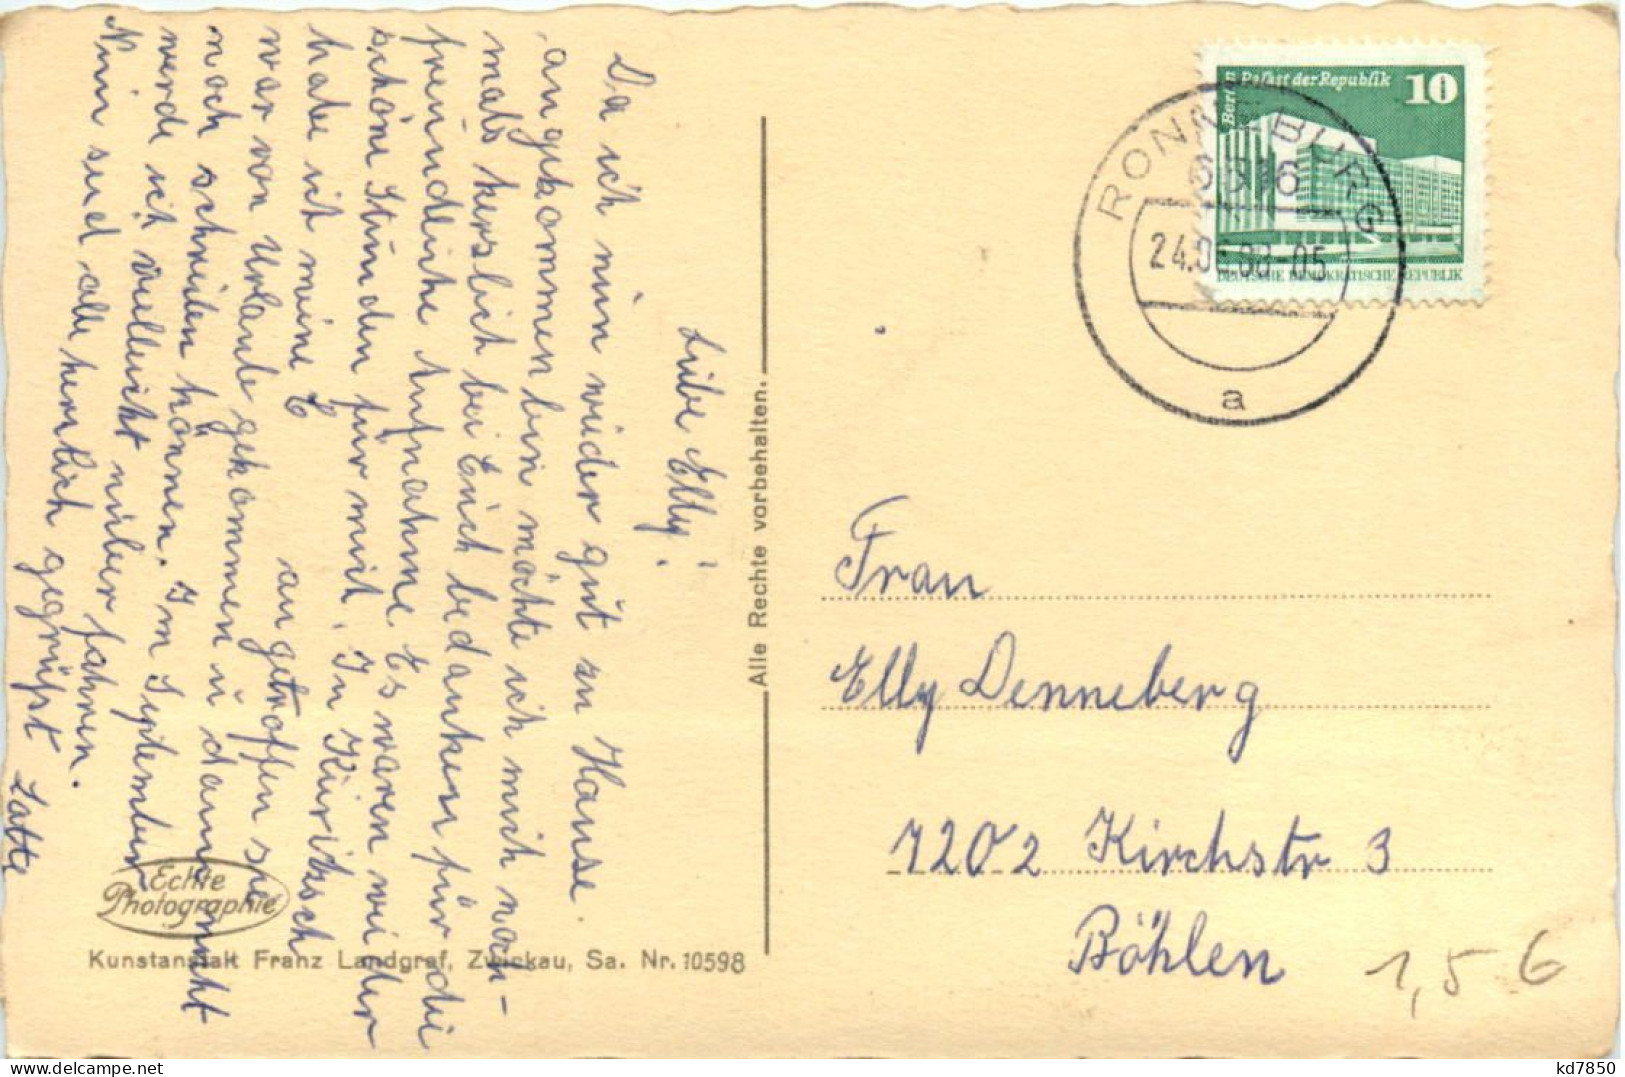 Liebe Elly!
Da ich nun wieder gut zu Hause
angekommen bin möchte ich mich noch-
mals herslich bei Euch bedanken für die
freundliche Aufnahme Es waren wieder
schöne Stunden für mich. In Kieritzsch
habe ich meine E angetroffen sie
war von Urlaube gekommen u dann nicht
noch schreiben können. Im September
werde ich vielleicht rüber fahren.
Nun seid alle herslich gegrüßt
Echte
Photographie
Kunstanstalt Franz Landgraf, Zwickau, Sa. Nr. 10598
Alle Rechte vorbehalten.
Berlin Palast der Republik 10
DEUTSCHE DEMOKRATISCHE REPUBLIK
RONNEBURG
24.0
-05
a
Frau
Elly Denneberg
7202 Kirchstr 3
Böhlen
1,5 6
kd7850